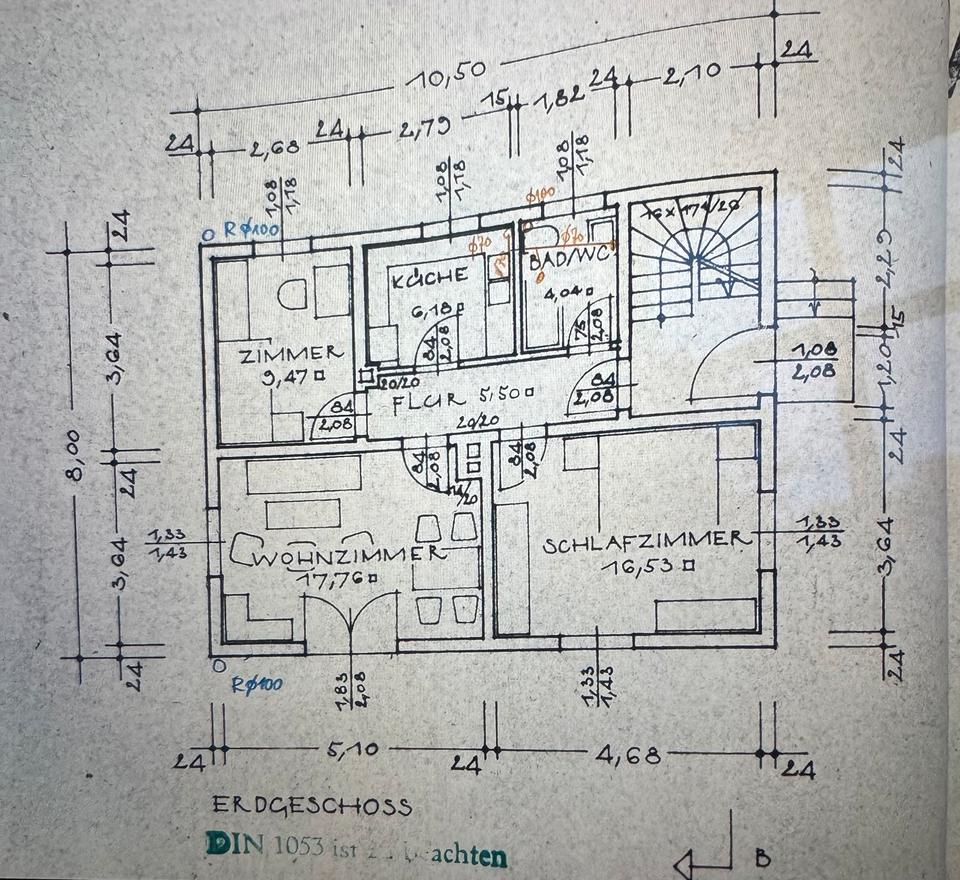 10,50
24
24 2,68 24 2,79 15 1,82 24 2,10
1,08
1,18
1,08
1,18
1,08
1,18
R Ø100
Ø100
Ø70
Ø70
24
3,64
24
3,64
24
8,00
KÜCHE
6,18
84
2,08
BAD/WC
4,04
75
2,08
24
2,29
15
1,20
24
3,64
24
ZIMMER
9,47
84
2,08
20/20
FLUR 5,50
20/20
84
2,08
1,08
2,08
84
2,08
84
2,08
1,33
1,43
WOHNZIMMER
17,76
SCHLAFZIMMER
16,53
1,33
1,43
RØ100
1,83
2,08
1,33
1,43
24 5,10 24 4,68 24
ERDGESCHOSS
DIN 1053 ist achten
B